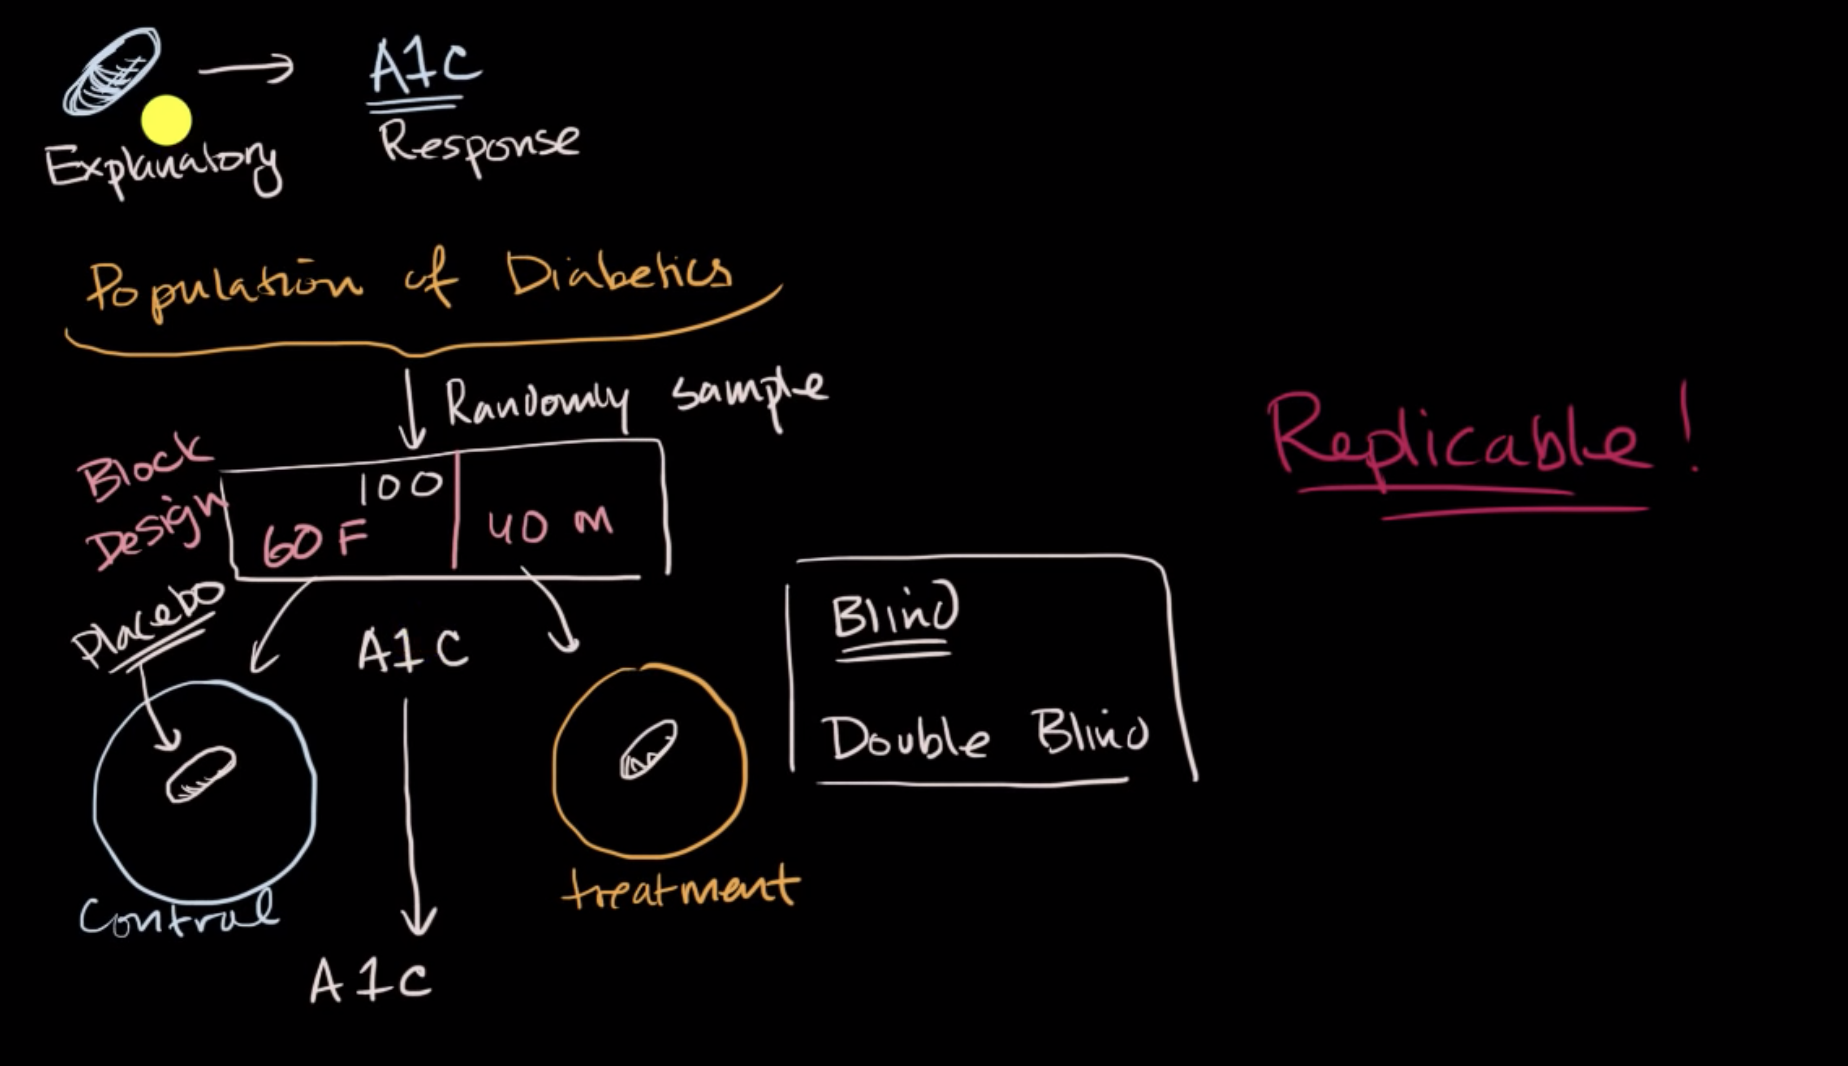 A1C
Explanatory
Response
Population of Diabetics
Randomly sample
Block
Design
100
60 F
40 M
Placebo
A1C
Control
treatment
A1C
Blind
Double Blind
Replicable!